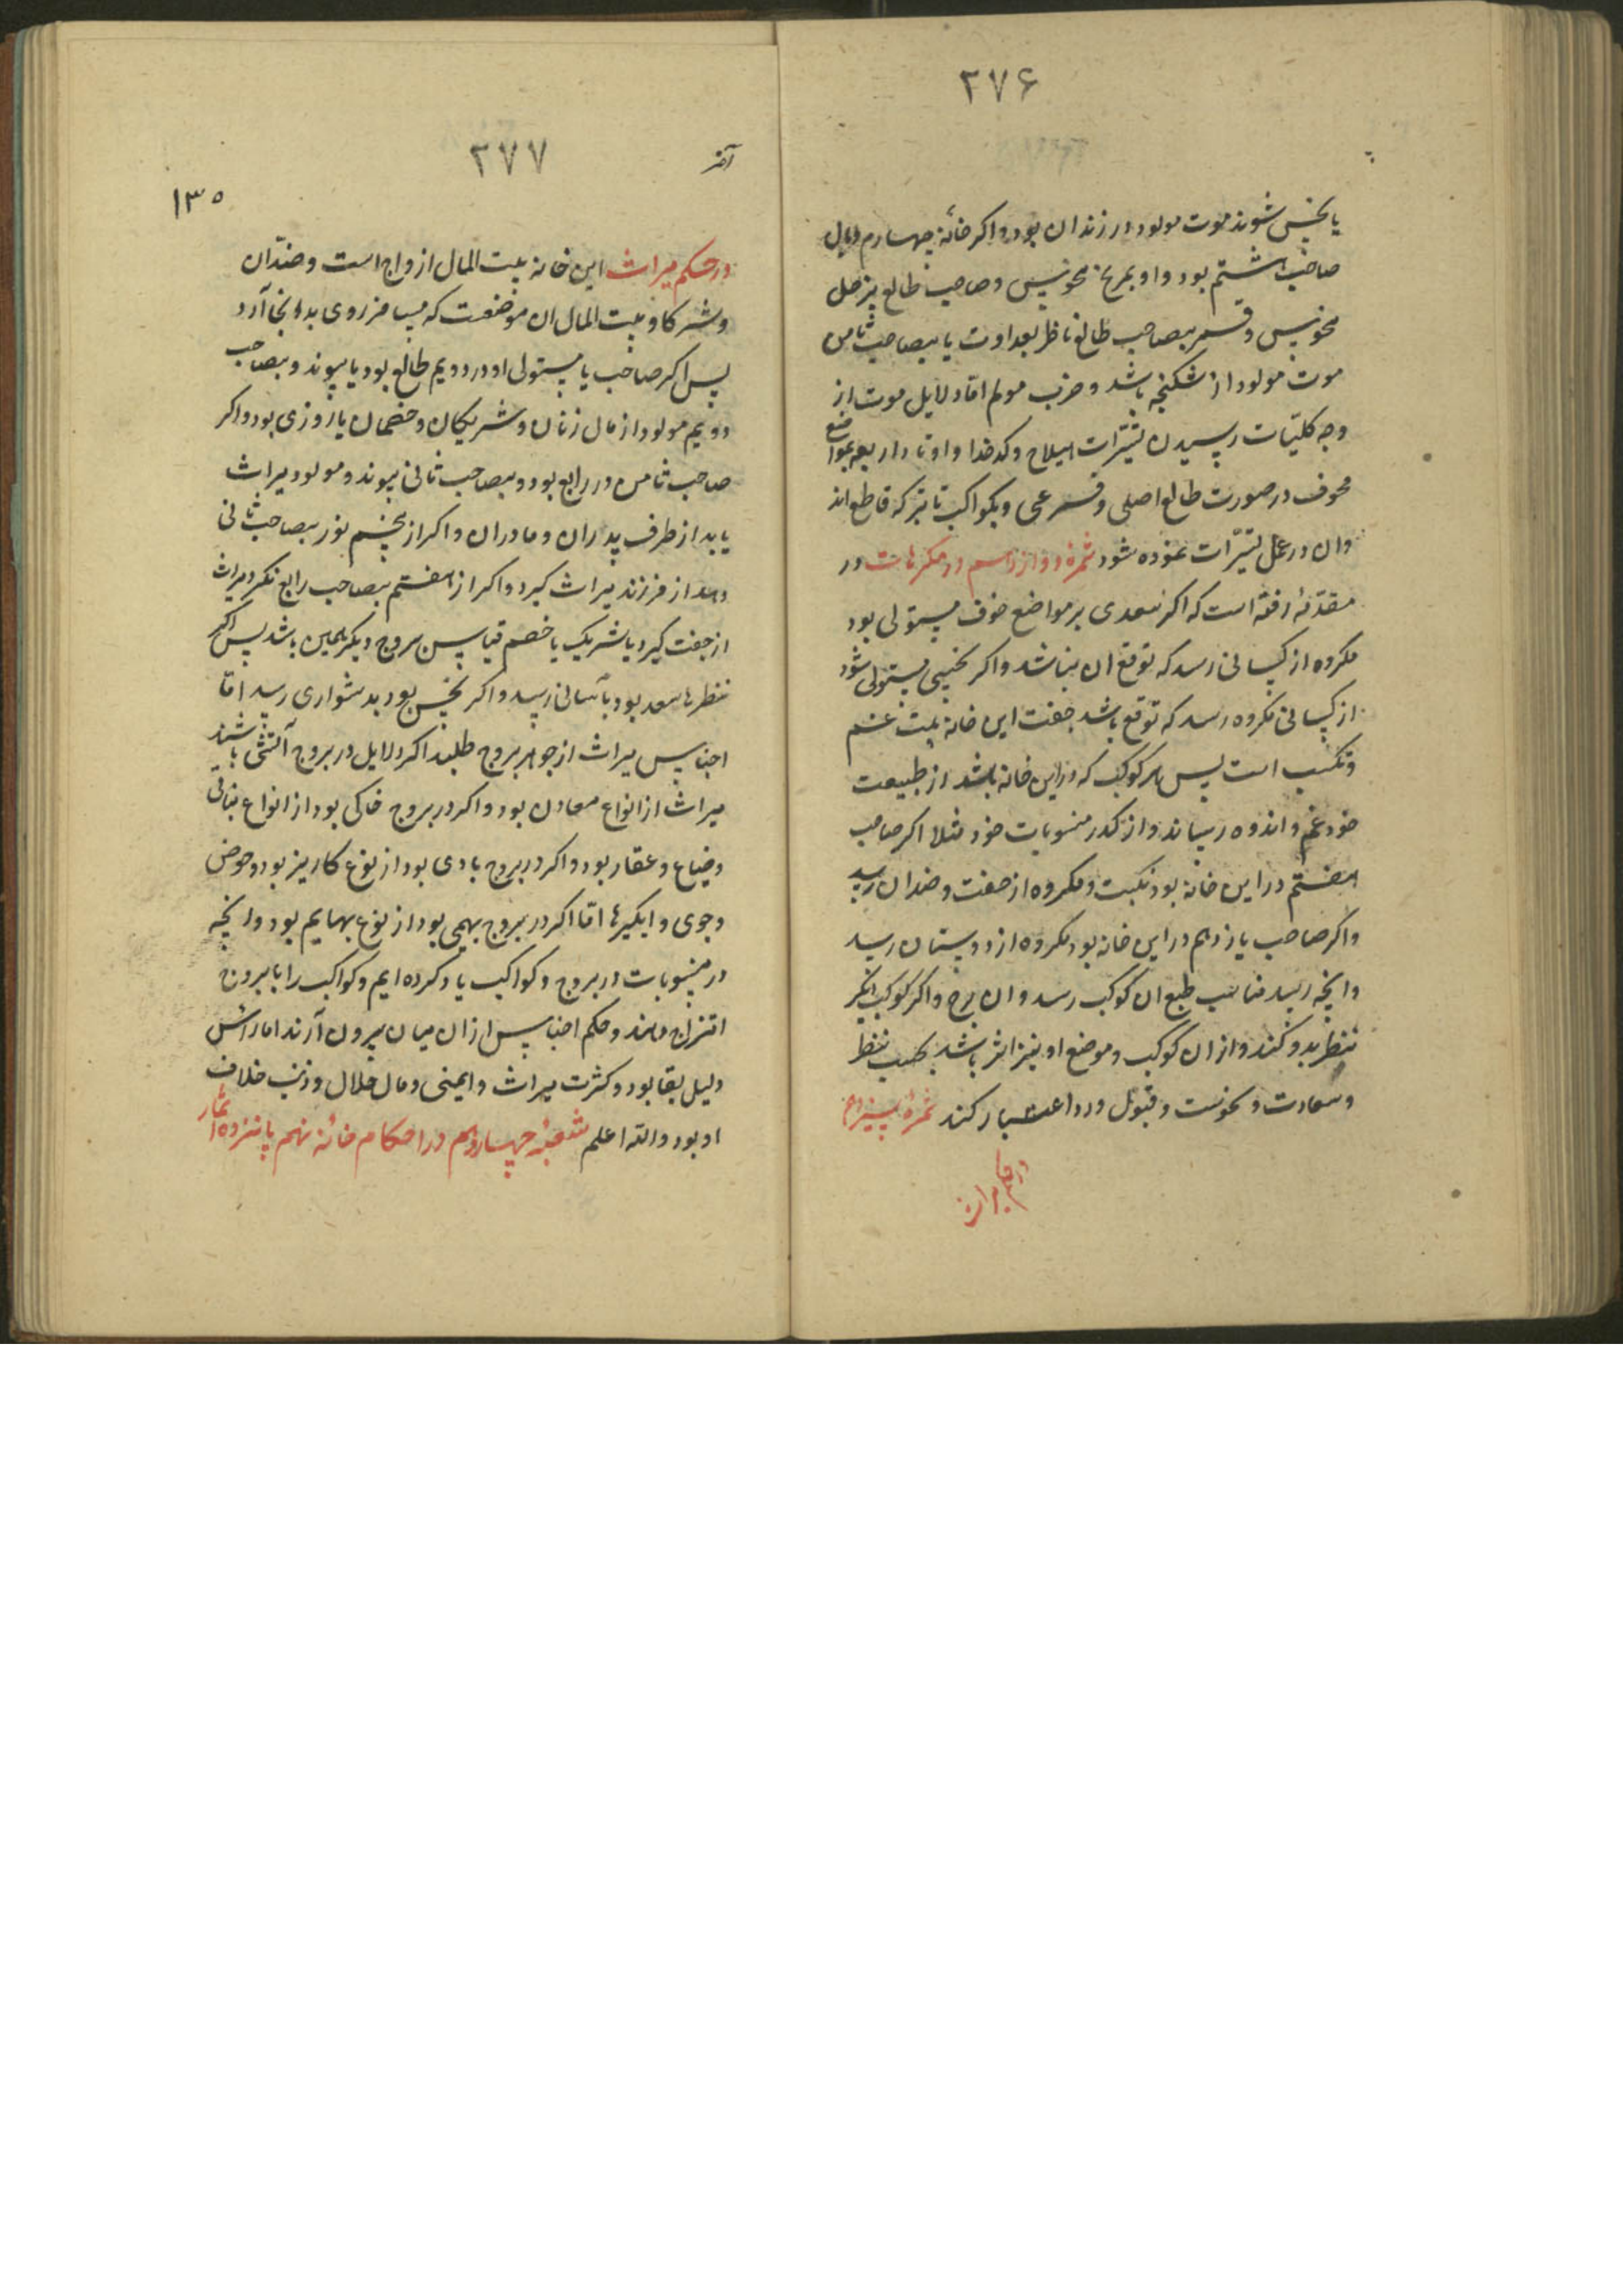 ۲۷۶
یا بخس شوند موت مولود در زندان بود و اکر خانهٔ چهارم وبال
صاحب هشتم بود و او بمریخ منحوس و صاحب طالع بزحل
منحوس و قمر بصاحب طالع ناظر بعداوت یا بصاحب ثامن
موت مولود از شکنجه باشد و ضرب مولم امّا دلایل موت از
وجه کلیّات رسیدن تسیّرات هیلاج و کدخدا و اوتاد اربعه بمواضع
مخوف در صورت طالع اصلی و فرعی و بکواکب ثابته که قاطع اند
و ان در عمل تسیّرات نموده شود ثمرهٔ دوازدهم در مکرهات در
مقدّمه رفته است که اکر سعدی بر مواضع خوف مستولی بود
مکروه از کسانی رسد که توقع ان نباشد و اکر نحسی مستولی شود
از کسانی مکروه رسد که توقع باشد جفت این خانه بیت غم
و نکبت است پس هر کوکب که در این خانه باشد از طبیعت
خود غم و اندوه رساند و از کدر منسوبات خود مثلا اکر صاحب
هفتم در این خانه بود نکبت و مکروه از جفت و ضدان رسد
و اکر صاحب یازدهم در این خانه بود مکروه از دوستان رسد
و انچه رسد مناسب طبع ان کوکب رسد و ان برج و اکر کوکب دیکر
بنظر بدو کند و از ان کوکب و موضع او نیز اثر باشد بحسب نظر
و سعادت و نحوست و قبول و رد اعتبار کند ثمرهٔ سیزدهم
در حکم میراث
۲۷۷
آخر
۱۳۵
در حکم میراث این خانه بیت المال ازواج است و ضدّان
و شرکا و بیت المال ان موضعست که مسافر روی بدانجا آرد
پس اکر صاحب یا مستولی او در دویم طالع بود یا پیوند و بصاحب
دویم مولود از مال زنان و شریکان و خصمان یا روزی بود و اکر
صاحب ثامن در رابع بود و بصاحب ثانی پیوند و مولود میراث
یابد از طرف پدران و مادران و اکر از پنجم نور بصاحب ثانی
دهد از فرزند میراث کیرد و اکر از هفتم بصاحب رابع نکرد میراث
از جفت کیرد یا شریک یا خصم قیاس بروج دیکر همین باشد پس اکر
نظرها سعد بود بآسانی رسد و اکر نحس بود بدشواری رسد امّا
اجناس میراث از جواهر بروج طلبد اکر دلایل در بروج آتشی باشند
میراث از انواع معادن بود و اکر در بروج خاکی بود از انواع نباتی
و ضیاع و عقار بود و اکر در بروج بادی بود از نوع کاریز بود و حوض
و جوی و ابکیرها امّا اکر در بروج بهیمی بود از نوع بهایم بود و انچه
در منسوبات در بروج و کواکب یاد کرده ایم و کواکب را با بروج
امتزاج دهند و حکم اجناس از ان میان بیرون آرند اما راس
دلیل بقا بود و کثرت میراث و ایمنی و مال حلال و ذنب خلاف
او بود والله اعلم شعبهٔ چهاردهم در احکام خانهٔ نهم پانزده اثمار